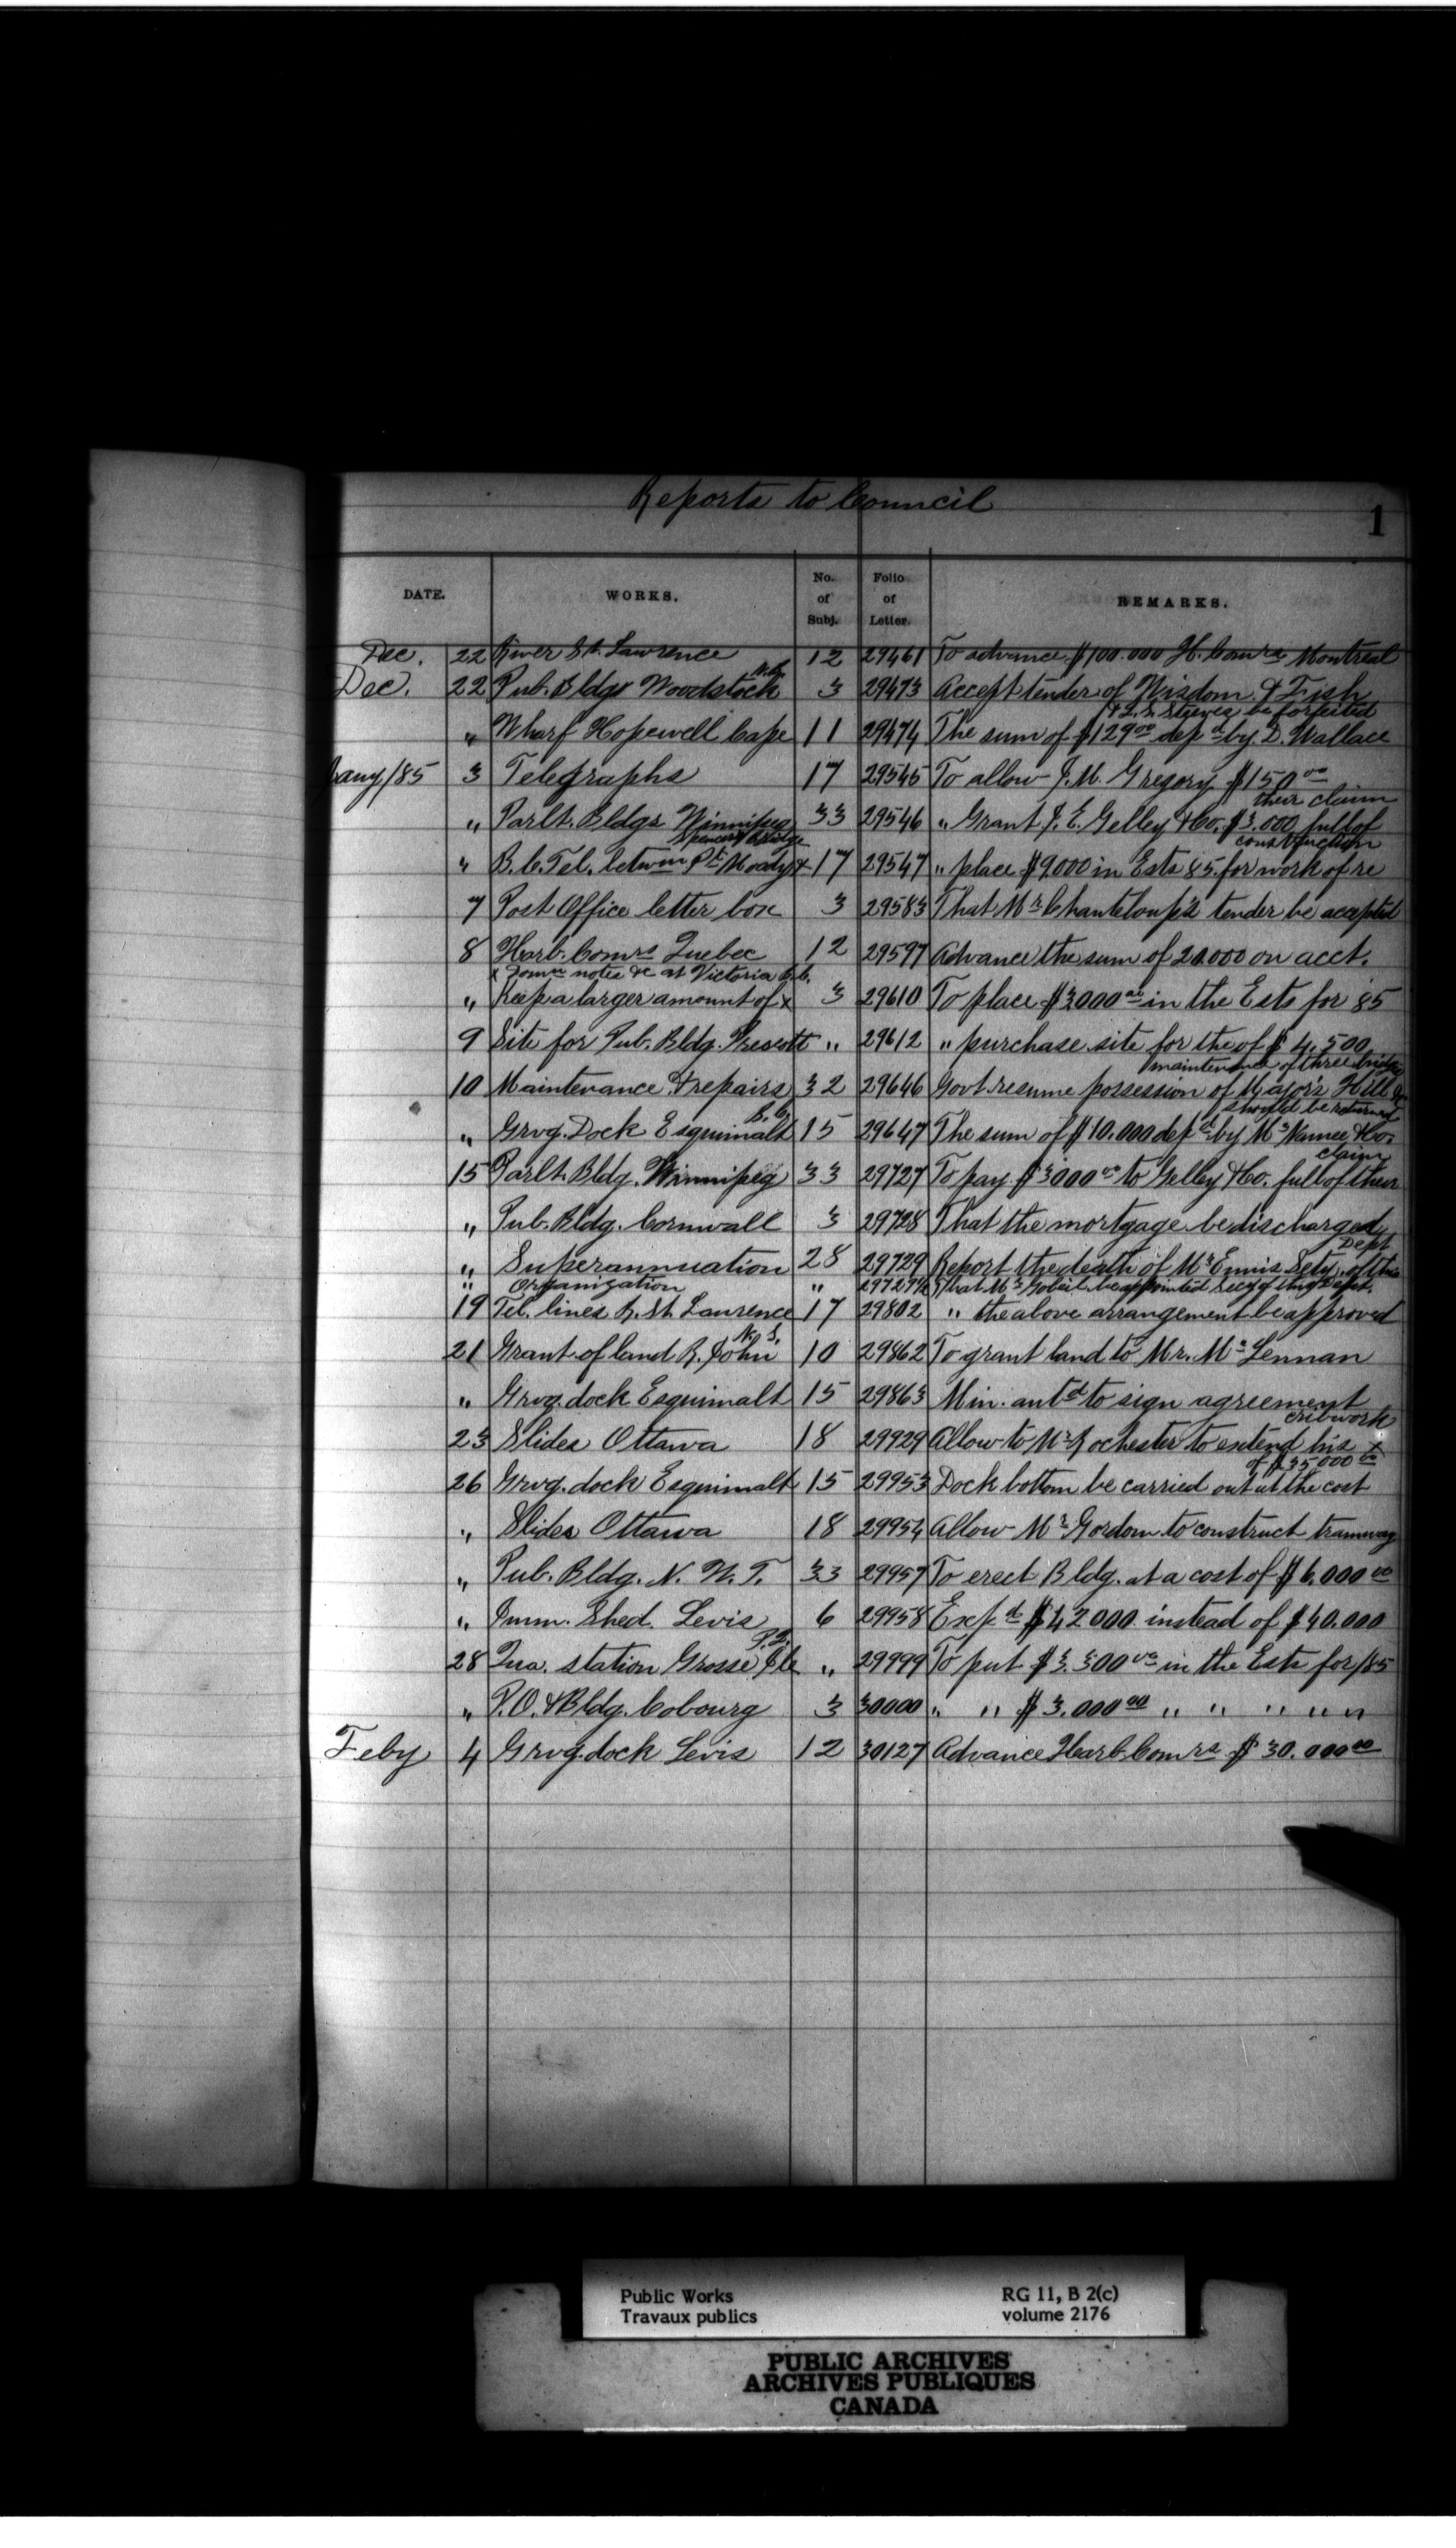 Reports to Council
1
DATE. WORKS. No. of Subj. Folio of Letter. REMARKS.
Dec. 22 River St. Lawrence 12 29461 To advance $100.000 H. Comrs Montreal
Dec. 22 Pub. Bldgs Woodstock N.B. 3 29473 Accept tender of Wisdom & Fish
" Wharf Hopewell Cape 11 29474 The sum of $129 00 depd by D. Wallace & L. S. Steeves be forfeited
Jany/85 3 Telegraphs 17 29545 To allow J. M. Gregory $150 00
" Parlt. Bldgs Winnipeg 33 29546 " Grant J. E. Gelley & Co. $3.000 full of their claim
" B.C. Tel. betwn Pt Moody & Spences Bridge 17 29547 " place $9.000 in Ests 85. for work of re construction
7 Post Office letter box 3 29583 That Mr Chanteloup's tender be accepted
8 Harb. Comrs Quebec 12 29597 Advance the sum of 20.000 on acct.
x Domn notes &c at Victoria B.C.
" Keep a larger amount of x 3 29610 To place $3000 00 in the Ests for 85
9 Site for Pub. Bldg. Prescott " 29612 " purchase site for the of $4.500
10 Maintenance & repairs 32 29646 Govt. resume possession of Major's Hill & maintenance of three bridges
" Grvg. Dock Esquimalt B.C. 15 29647 The sum of $10.000 depd by McNamee & Co. should be returned
15 Parlt. Bldg. Winnipeg 33 29727 To pay $3000 00 to Gelley & Co. full of their claim
" Pub. Bldg. Cornwall 3 29728 That the mortgage be discharged
" Superannuation 28 29729 Report the death of Mr Ennis Secty. of this Dept
" Organization " 29729½ That Mr Gobeil be appointed Secy of this Dept.
19 Tel. lines R. St. Laurence 17 29802 " the above arrangement be approved
21 Grant of land R. John N. S. 10 29862 To grant land to Mr. McLennan
" Grvg. dock Esquimalt 15 29863 Min. autd to sign agreement
23 Slides Ottawa 18 29929 Allow to Mr Rochester to extend his cribwork
26 Grvg. dock Esquimalt 15 29953 Dock bottom be carried out at the cost of $35000 00
" Slides Ottawa 18 29954 Allow Mr Gordon to construct tramway
" Pub. Bldg. N. W. T. 33 29957 To erect Bldg. at a cost of $6.000 00
" Imm. Shed. Levis 6 29958 Expd $42000 instead of $40.000
28 Qua. station Grosse Ile P.Q. " 29999 To put $3.500 00 in the Ests for /85
" P.O. & Bldg. Cobourg 3 30000 " " $3.000 00 " " " " "
Feby 4 Grvg. dock Levis 12 30127 Advance Harb. Comrs $30.000 00
Public Works RG 11, B 2(c)
Travaux publics volume 2176
PUBLIC ARCHIVES
ARCHIVES PUBLIQUES
CANADA